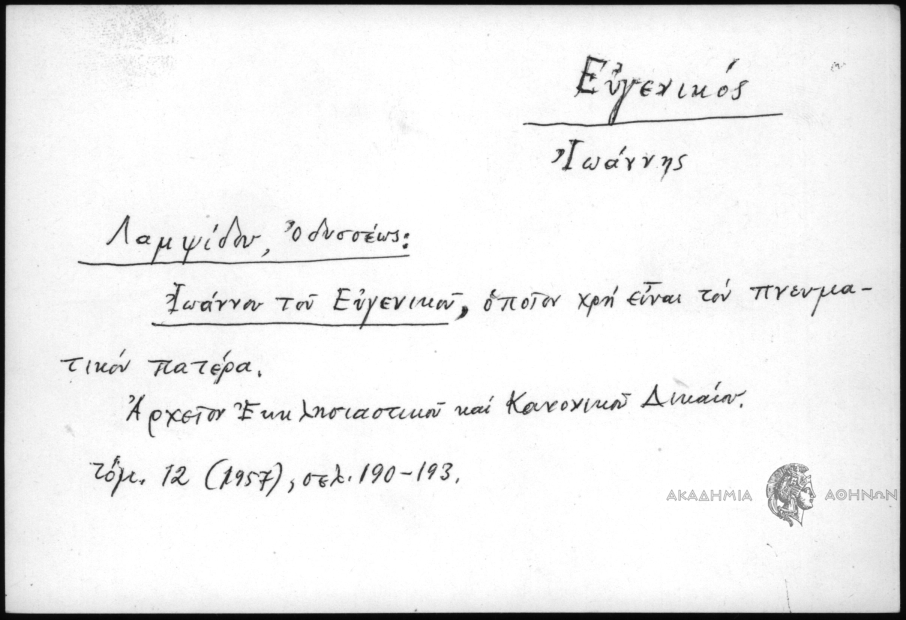 Εὐγενικός
Ἰωάννης
Λαμψίδου, Ὀδυσσέως:
Ἰωάννου τοῦ Εὐγενικοῦ, ὁποῖον χρή εἶναι τόν πνευμα-
τικόν πατέρα.
Ἀρχεῖον Ἐκκλησιαστικοῦ καί Κανονικοῦ Δικαίου.
τόμ. 12 (1957), σελ. 190-193.
ΑΚΑΔΗΜΙΑ ΑΘΗΝΩΝ